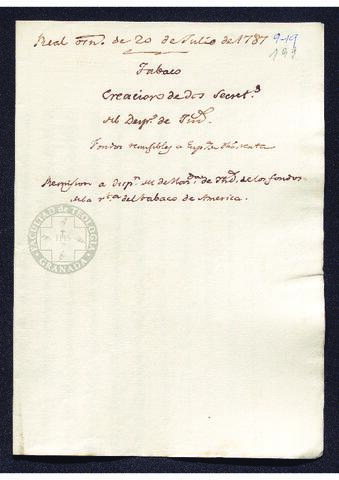 Real orn. de 20 de Julio de 1787
9-19
199
Tabaco
Creacion de dos Secret.s
del Desp.o de Ind.
Fondos remisibles a Esp.a de dha renta
Remision a Esp.a de de Ind.s de los fondos
de la r.ta del tabaco de America.
FACULTAD DE TEOLOGIA
GRANADA